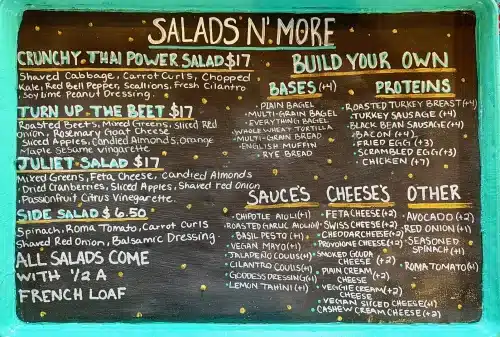 SALADS N' MORE
CRUNCHY THAI POWER SALAD $17
Shaved Cabbage, Carrot Curls, Chopped
Kale, Red Bell Pepper, Scallions, Fresh Cilantro
Soy Lime Peanut Dressing
TURN UP THE BEET $17
Roasted Beets, Mixed Greens, Sliced Red
Onion, Rosemary Goat Cheese
Sliced Apples, Candied Almonds, Orange
Maple Sesame Vinegarette
JULIET SALAD $17
Mixed Greens, Feta Cheese, Candied Almonds
Dried Cranberries, Sliced Apples, Shaved red Onion
Passionfruit Citrus Vinegarette
SIDE SALAD $6.50
Spinach, Roma Tomato, Carrot Curls
Shaved Red Onion, Balsamic Dressing
ALL SALADS COME
WITH 1/2 A
FRENCH LOAF
BUILD YOUR OWN
BASES (+4)
• PLAIN BAGEL
• MULTI-GRAIN BAGEL
• EVERYTHING BAGEL
• WHOLE WHEAT TORTILLA
• MULTI-GRAIN BREAD
• ENGLISH MUFFIN
• RYE BREAD
PROTEINS
• ROASTED TURKEY BREAST (+4)
• TURKEY SAUSAGE (+4)
• BLACK BEAN SAUSAGE (+4)
• BACON (+4)
• FRIED EGG (+3)
• SCRAMBLED EGG (+3)
• CHICKEN (+7)
SAUCE'S
• CHIPOTLE AIOLI (+1)
• ROASTED GARLIC AIOLI (+1)
• BASIL PESTO (+1)
• VEGAN MAYO (+1)
• JALAPEÑO COULIS (+1)
• CILANTRO COULIS (+1)
• GODDESS DRESSING (+1)
• LEMON TAHINI (+1)
CHEESE'S
• FETA CHEESE (+2)
• SWISS CHEESE (+2)
• CHEDDAR CHEESE (+2)
• PROVOLONE CHEESE (+2)
• SMOKED GOUDA
CHEESE (+2)
• PLAIN CREAM (+2)
CHEESE
• VEGGIE CREAM (+2)
CHEESE
• VEGAN SLICED CHEESE (+1)
• CASHEW CREAM CHEESE (+2)
OTHER
• AVOCADO (+2)
• RED ONION (+1)
• SEASONED
SPINACH (+1)
• ROMA TOMATO (+1)